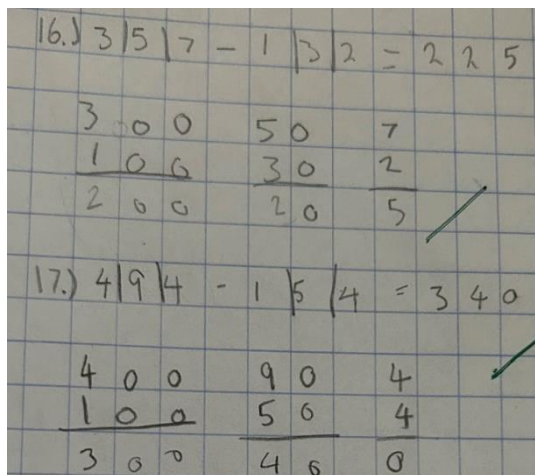 16.) 3|5|7 - 1|3|2 = 225
300 50 7
100 30 2
200 20 5
17.) 4|9|4 - 1|5|4 = 340
400 90 4
100 50 4
300 40 0